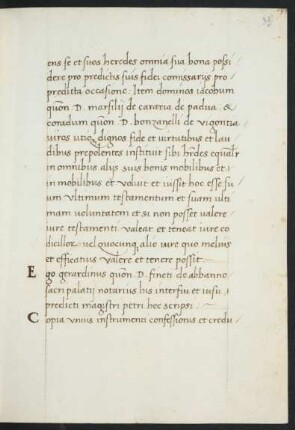 ens se et suos heredes omnia sua bona possi
dere pro predictis suis fidei comissarijs pro
predicta occasione. Item dominos iacobum
quon. D. marsilij de cararia de padua &
coradum quon. D. bonzanelli de vigontia
viros utiq; dignos fide et virtutibus et lau
dibus prepolentes instituit sibi hrdes equalr
in omnibus alijs suis bonis mobilibus et i
mobilibus et voluit et iussit hoc esse su
um ultimum testamentum et suam ulti
mam voluntatem et si non posset valere
iure testamenti valeat et teneat iure co
dicillor. vel quocunq; alio iure quo melius
et efficatius valere et tenere possit
Ego gerardinus quon. D. fineti de abbanno
sacri palatij notarius his interfui et iussu
predicti magistri petri hec scripsi
Copia unius instrumenti confessionis et credu